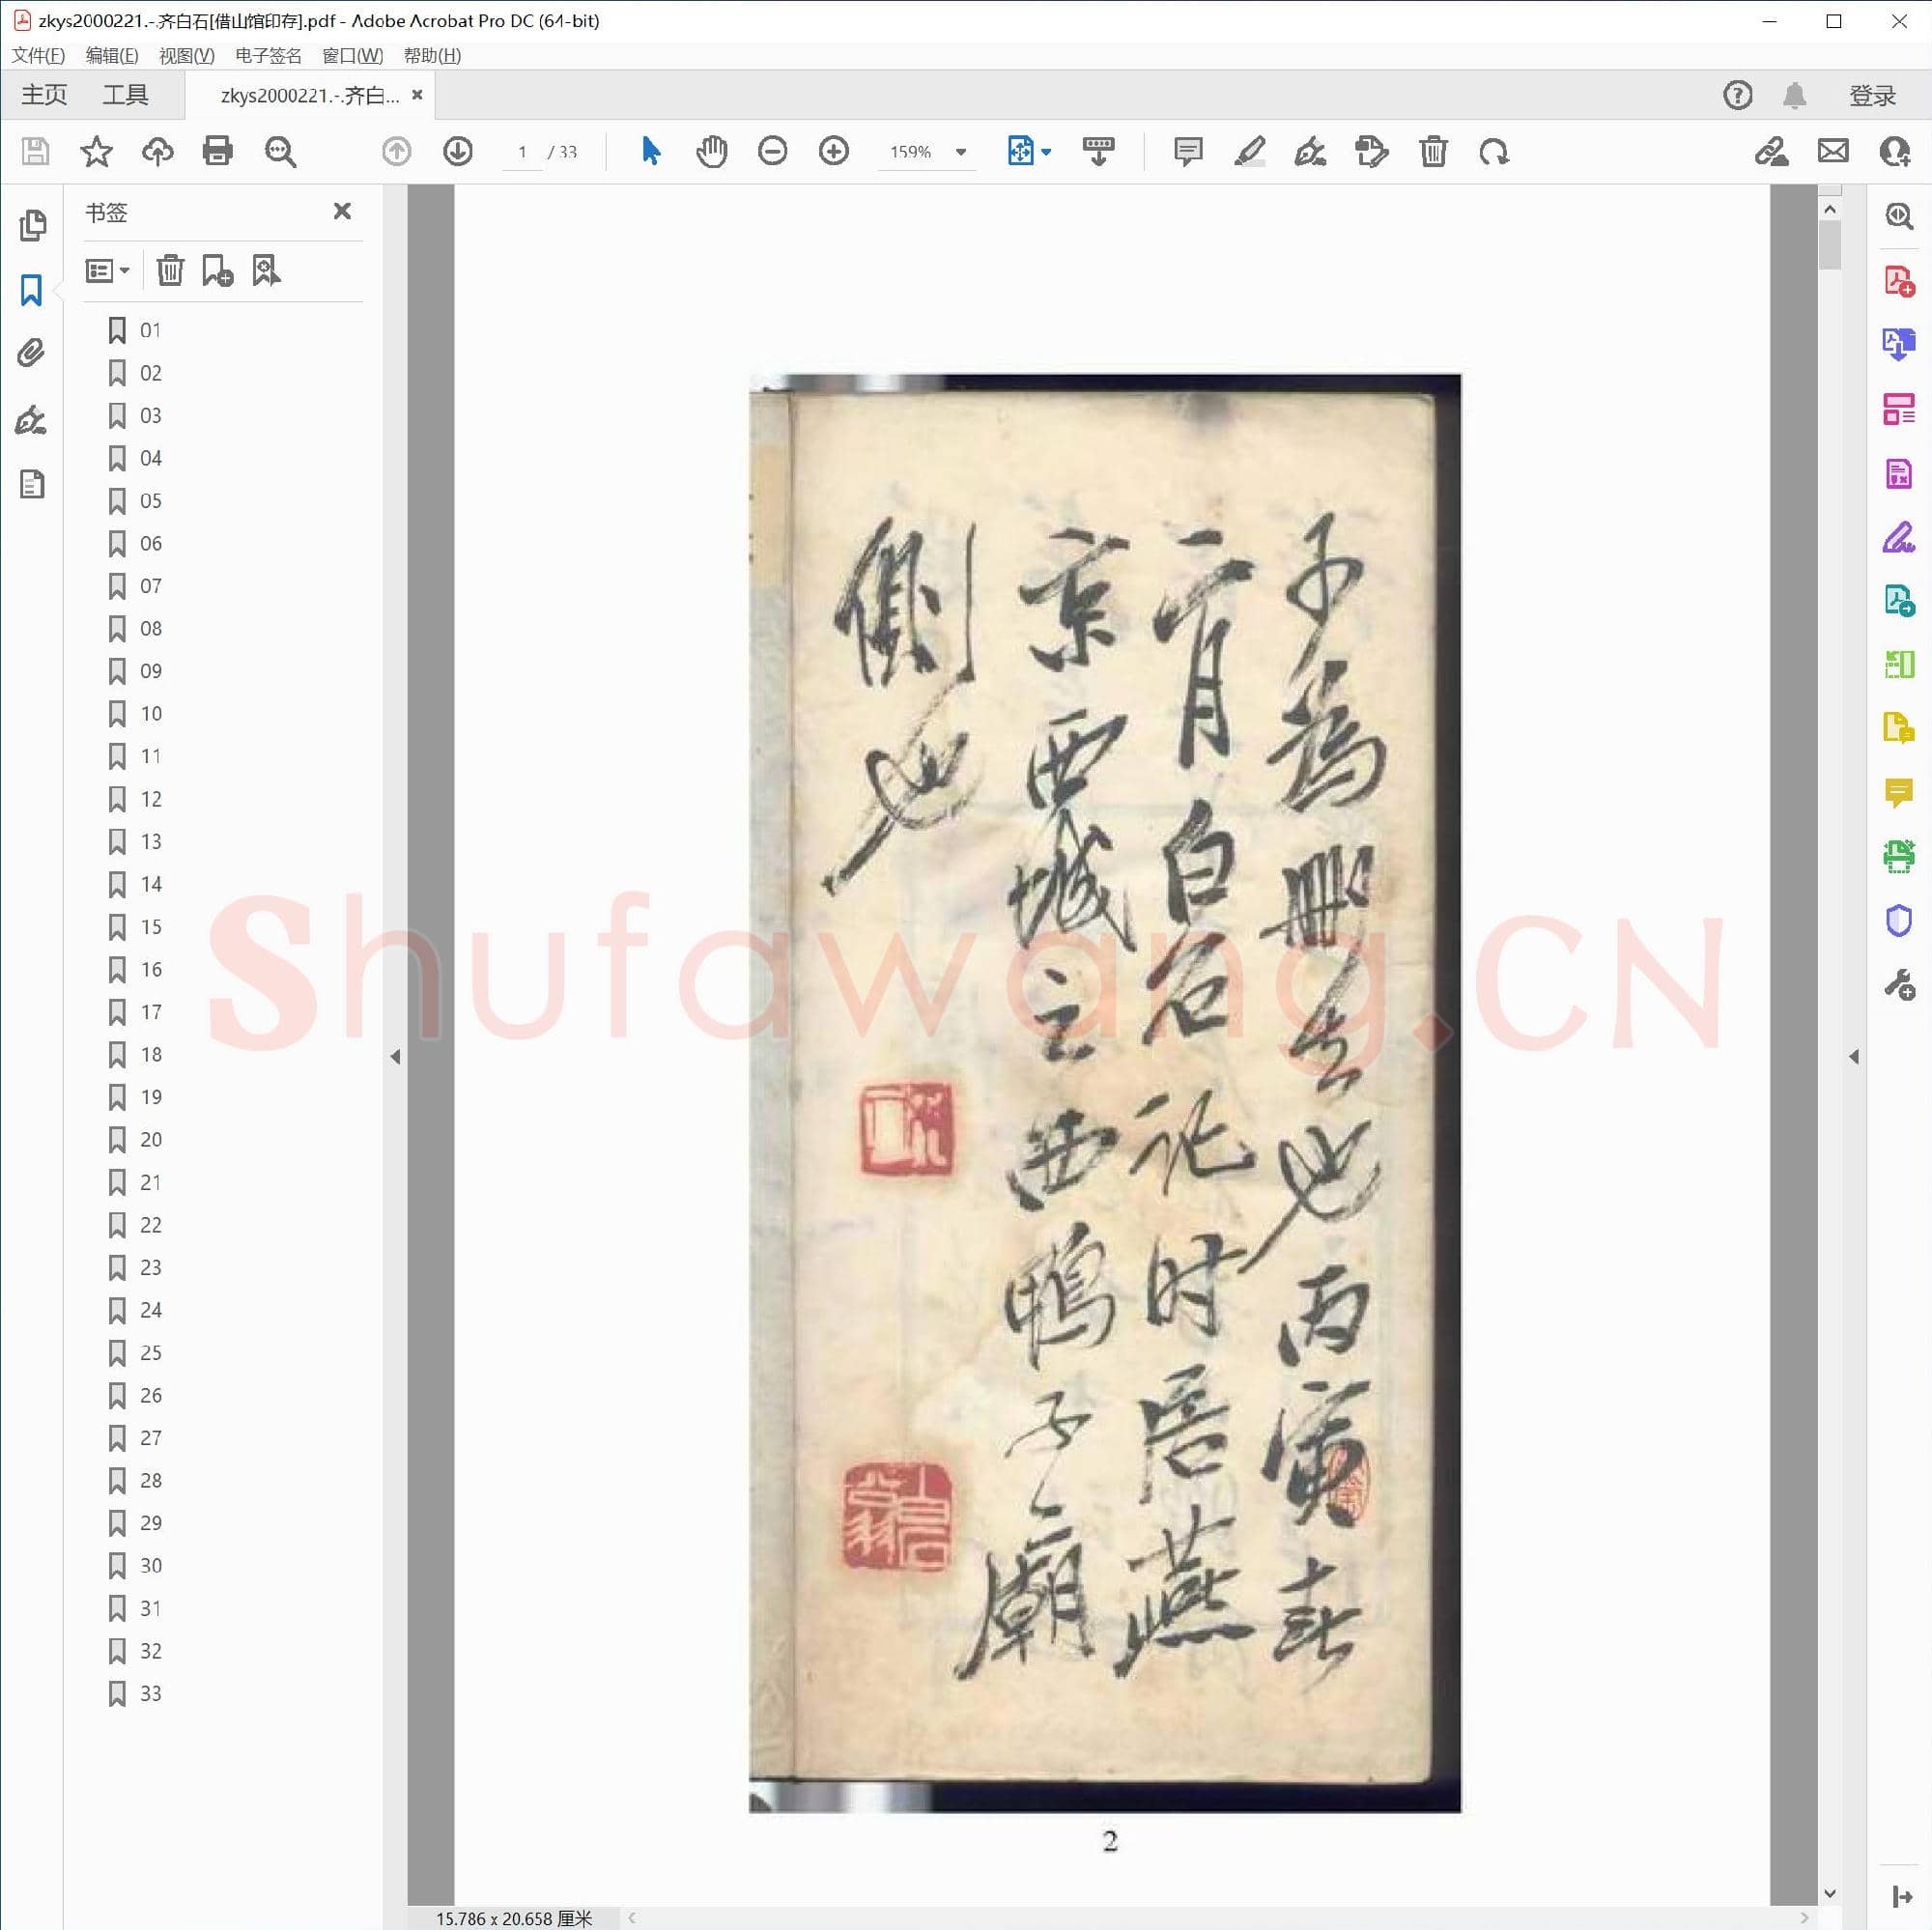 zkys2000221.-.齐白石[借山馆印存].pdf - Adobe Acrobat Pro DC (64-bit)
文件(F) 编辑(E) 视图(V) 电子签名 窗口(W) 帮助(H)
主页 工具 zkys2000221.-.齐白... 登录
1 / 33 159%
书签
01
02
03
04
05
06
07
08
09
10
11
12
13
14
15
16
17
18
19
20
21
22
23
24
25
26
27
28
29
30
31
32
33
予為刪去也丙寅春
二月白石記时居燕
京西城之西鴨子廟
側也
白石翁
Shufawang.CN
2
15.786 x 20.658 厘米